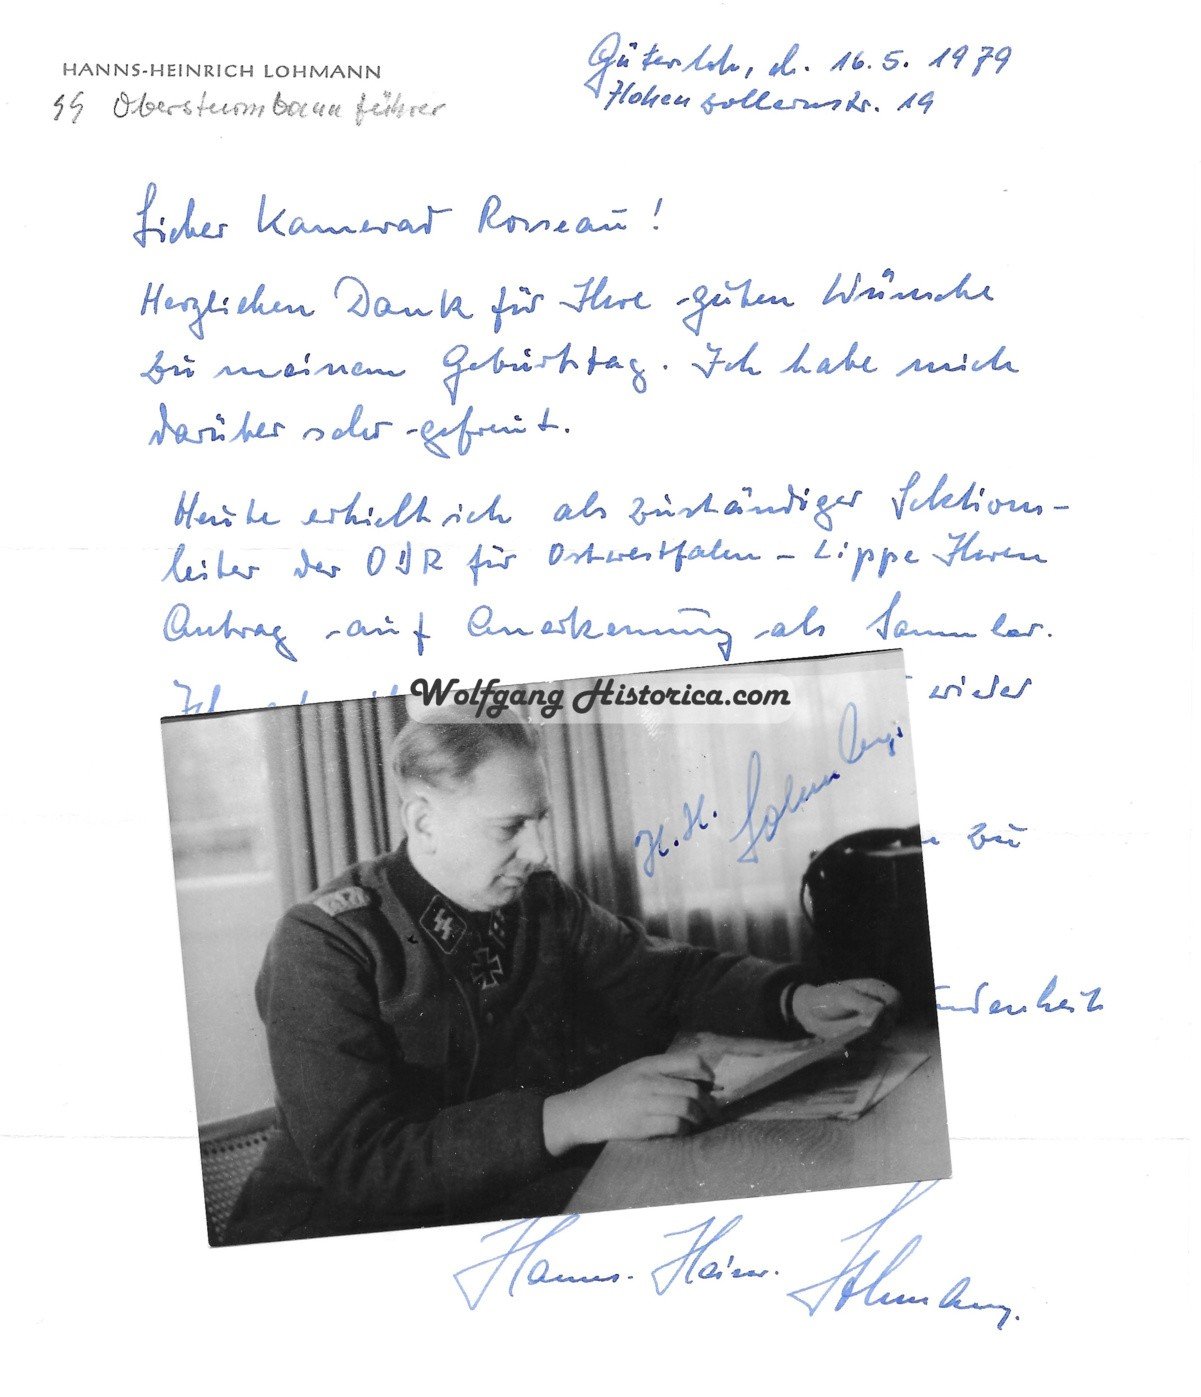 HANNS-HEINRICH LOHMANN
SS Obersturmbannführer
Gütersloh, d. 16.5.1979
Hohenzollernstr. 19
Lieber Kamerad Rosseau!
Herzlichen Dank für Ihre guten Wünsche
zu meinem Geburtstag. Ich habe mich
darüber sehr gefreut.
Heute erhielt ich als zuständiger Sektions-
leiter der OdR für Ostwestfalen-Lippe Ihren
Antrag auf Anerkennung als Sammler.
Ich
wieder
Wolfgang Historica.com
H.H. Lohmann
zu
Hanns-Heinr. Lohmann.